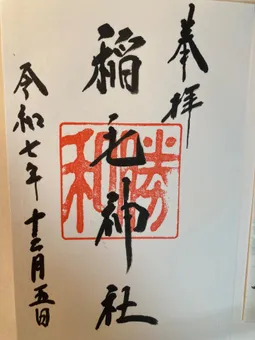 奉拝
稲毛神社
勝利
令和七年十二月五日